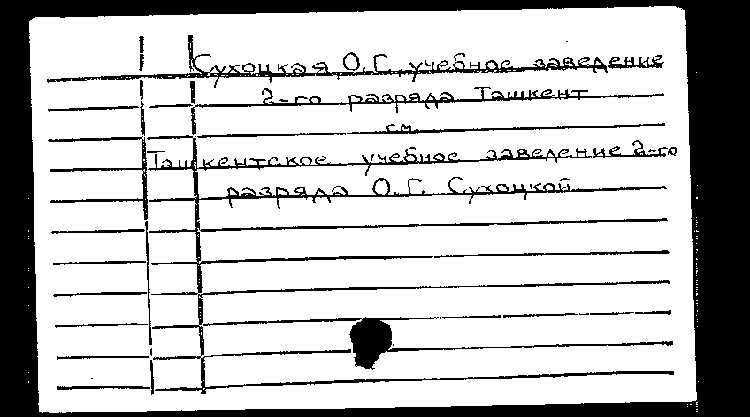 Сухоцкая, О.Г., учебное заведение
2-го разряда Ташкент
см.
Ташкентское учебное заведение 2-го
разряда О.Г. Сухоцкой